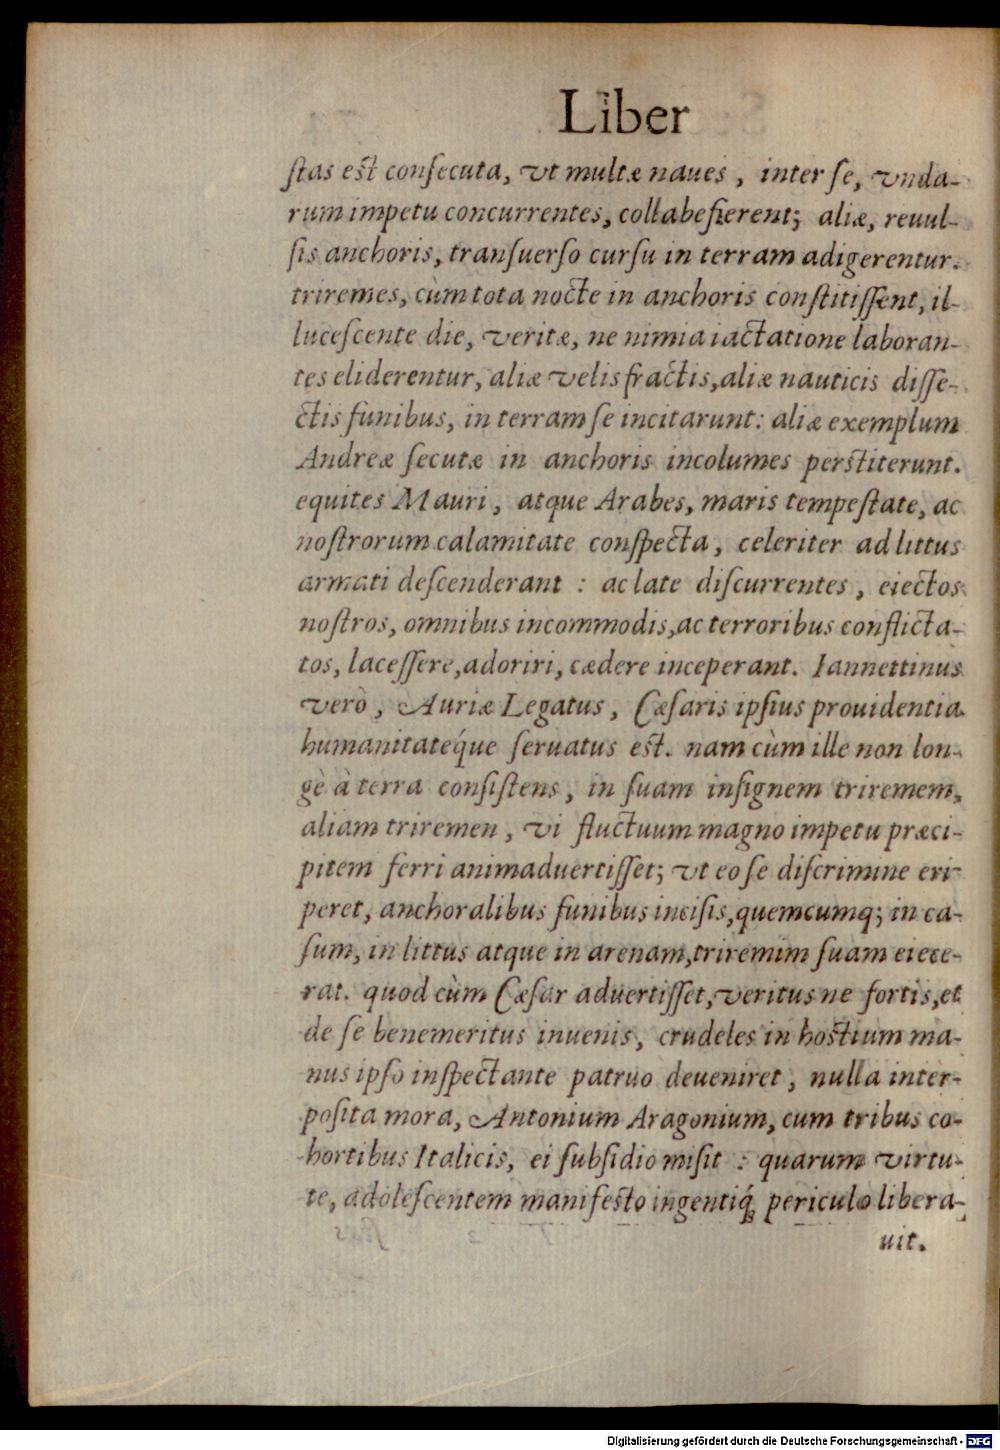 Liber
ſtas eſt conſecuta, vt multæ naues, inter ſe, vnda-
rum impetu concurrentes, collabefierent; aliæ, reuul-
ſis anchoris, tranſuerſo curſu in terram adigerentur.
triremes, cùm tota nocte in anchoris conſtitiſſent, il-
luceſcente die, veritæ, ne nimia iactatione laboran-
tes eliderentur, aliæ velis fractis, aliæ nauticis diſſe-
ctis funibus, in terram ſe incitarunt: aliæ exemplum
Andreæ ſecutæ in anchoris incolumes perſtiterunt.
equites Mauri, atque Arabes, maris tempeſtate, ac
noſtrorum calamitate conſpecta, celeriter ad littus
armati deſcenderant: ac late diſcurrentes, eiectos
noſtros, omnibus incommodis, ac terroribus conflicta-
tos, laceſſere, adoriri, cædere inceperant. Iannettinus
verò, Auriæ Legatus, Cæſaris ipſius prouidentia
humanitateq́ue ſeruatus eſt. nam cùm ille non lon-
gè à terra conſiſtens, in ſuam inſignem triremem,
aliam triremen, vi fluctuum magno impetu præci-
pitem ferri animaduertiſſet; vt eo ſe diſcrimine eri-
peret, anchoralibus funibus inciſis, quemcumq; in ca-
ſum, in littus atque in arenam, triremim ſuam eiece-
rat. quod cùm Cæſar aduertiſſet, veritus ne fortis, et
de ſe benemeritus inuenis, crudeles in hoſtium ma-
nus ipſo inſpectante patruo deueniret, nulla inter-
poſita mora, Antonium Aragonium, cum tribus co-
hortibus Italicis, ei ſubſidio miſit: quarum virtu-
te, adoleſcentem manifeſto ingentiq́; periculo libera-
uit.
Digitalisierung gefördert durch die Deutsche Forschungsgemeinschaft - DFG